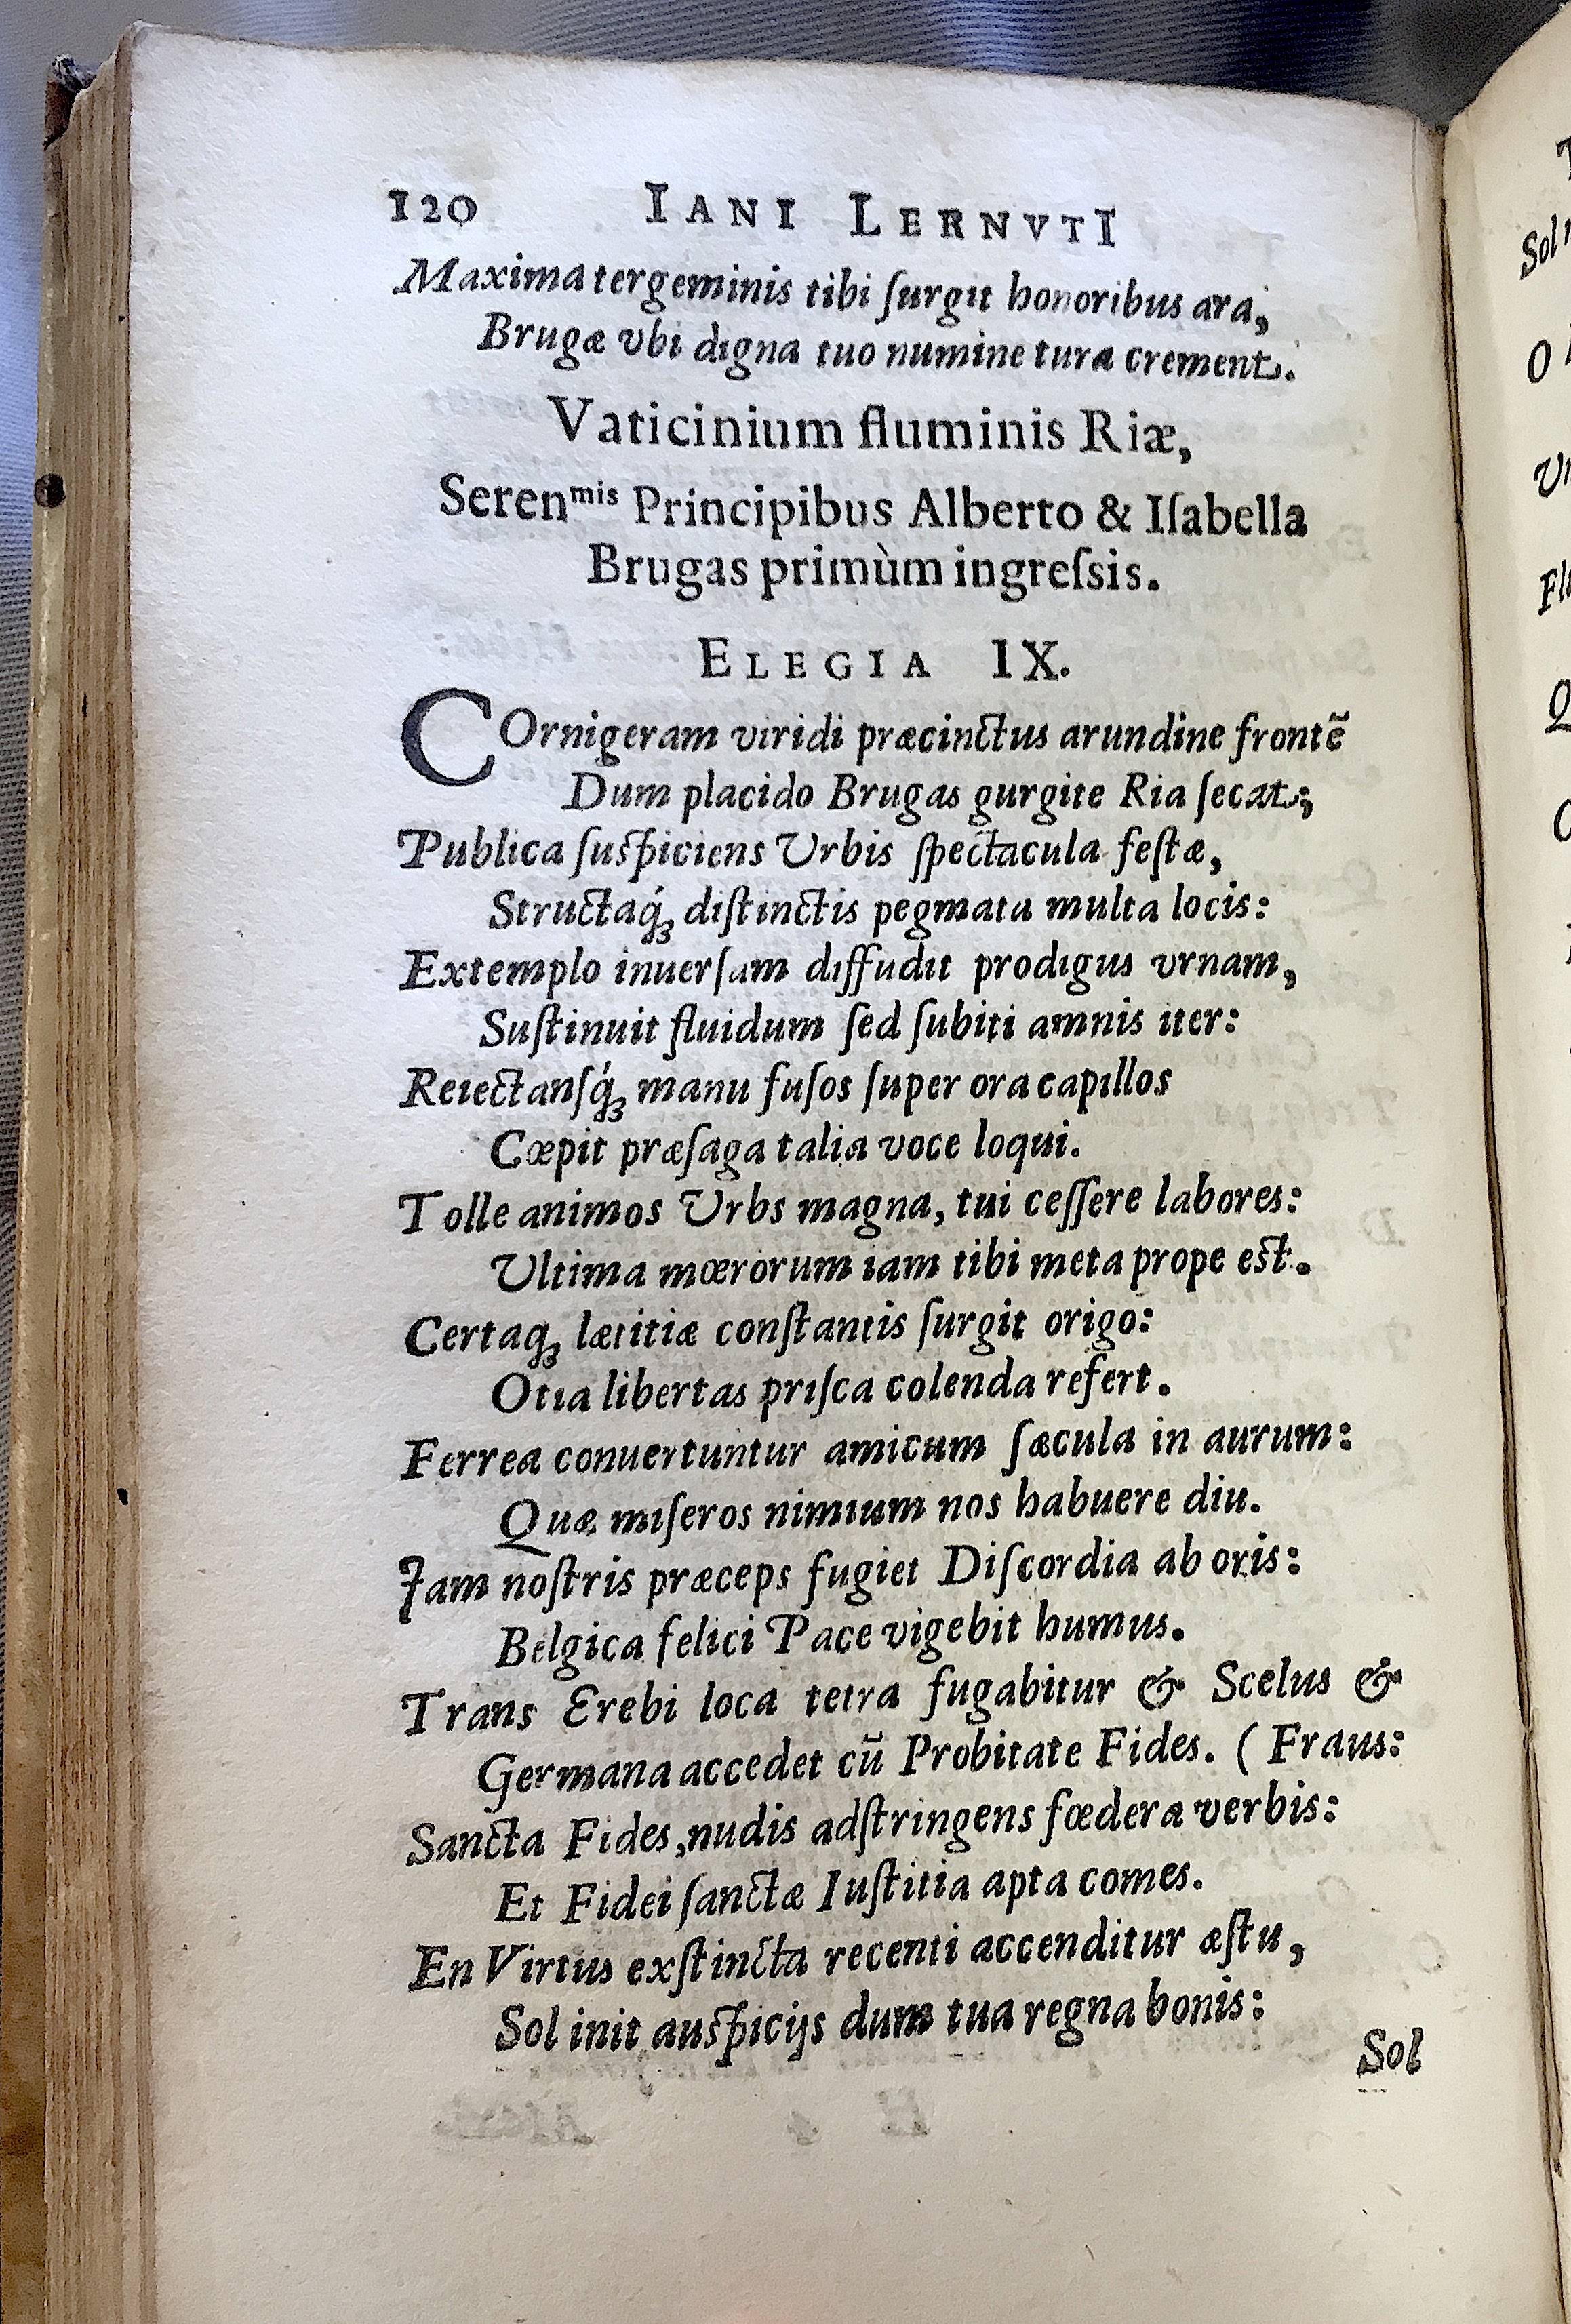 120 IANI LERNVTI
Maxima tergeminis tibi ſurgit honoribus ara,
Brugæ vbi digna tuo numine tura crement.
Vaticinium fluminis Riæ,
Serenmis Principibus Alberto & Iſabella
Brugas primùm ingreſsis.
ELEGIA IX.
COrnigeram viridi præcinctus arundine frontẽ
Dum placido Brugas gurgite Ria ſecat;
Publica ſuſpiciens Vrbis ſpectacula feſtæ,
Structaq́ꝫ diſtinctis pegmata multa locis:
Extemplo inuerſam diffudit prodigus vrnam,
Suſtinuit fluidum ſed ſubiti amnis iter:
Reiectanſq́ꝫ manu fuſos ſuper ora capillos
Cœpit præſaga talia voce loqui.
Tolle animos Vrbs magna, tui ceſſere labores:
Vltima mœrorum iam tibi meta prope est.
Certaqꝫ lætitiæ conſtantis ſurgit origo:
Otia libertas priſca colenda refert.
Ferrea conuertuntur amicum ſæcula in aurum:
Quæ miſeros nimium nos habuere diu.
Iam noſtris præceps fugiet Diſcordia ab oris:
Belgica felici Pace vigebit humus.
Trans Erebi loca tetra fugabitur & Scelus &
Germana accedet cũ Probitate Fides. ( Fraus:
Sancta Fides, nudis adſtringens fœdera verbis:
Et Fidei ſanctæ Iuſtitia apta comes.
En Virtus exſtincta recenti accenditur æſtu,
Sol init auſpicijs dum tua regna bonis:
Sol